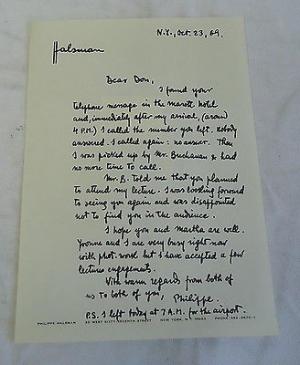 Halsman
N.Y., Oct. 23, 69.
Dear Don,
I found your
telephone message in the hotel
and, immediately after my arrival, (around
4 P.M.) I called the number you left. nobody
answered. I called again: no answer. Then
I was picked up by Mr. Buchanan & had
no more time to call.
Mr. B. told me that you planned
to attend my lecture. I was looking forward
to seeing you again and was disappointed
not to find you in the audience.
I hope you and Martha are well.
Yvonne and I are very busy right now
with phot. work but I have accepted a few
lectures engagements.
With warm regards from both of
us to both of you, Philippe.
P.S. I left today at 7 A.M. for the airport.
PHILIPPE HALSMAN 33 WEST SIXTY-SEVENTH STREET NEW YORK, N.Y. 10023 PHONE